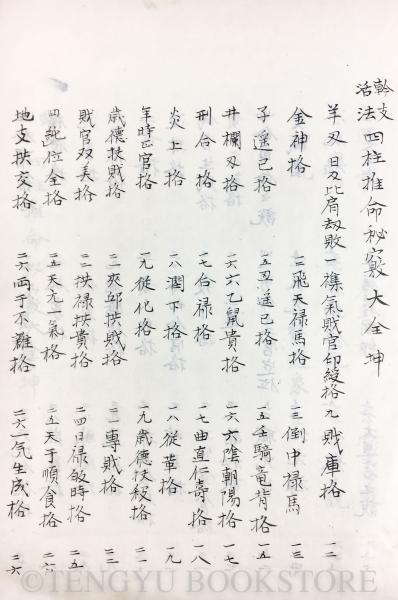 幹支
活法 四柱推命秘竅大全 坤
羊刃 日刃比肩劫敗 一 雜氣財官印綬格 九 財庫格 一二
金神格 一二 飛天禄馬格 一三 倒冲禄馬 一三
子遥巳格 一五 丑遥巳格 一五 壬騎竜背格 一五
井欄叉格 一六 六乙鼠貴格 一六 六陰朝陽格 一七
刑合格 一七 合禄格 一七 曲直仁壽格 一八
炎上格 一八 潤下格 一八 從革格 一九
年時正官格 一九 從化格 一九 歳德扶殺格 二一
歳德扶財格 二一 夾邱拱財格 二一 專財格 二二
財官双美格 二二 拱禄拱貴格 二四 日禄歸時格 二五
四純位全格 二五 天元一氣格 二五 天干順食格 二六
地支拱夾格 二六 両干不雜格 二六 一気生成格 二六
©TENGYU BOOKSTORE